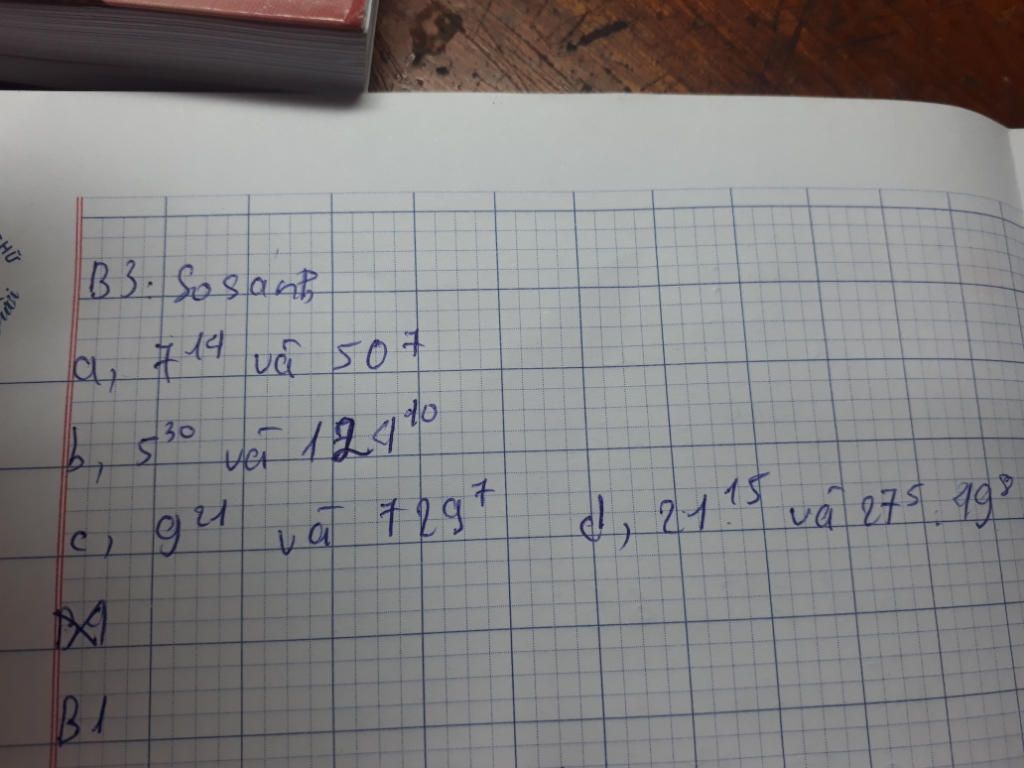 B3: So sanh
a, 7^14 và 50^7
b, 5^30 và 124^10
c, 9^21 và 729^7 d, 21^15 và 27^5 . 49^8
B1